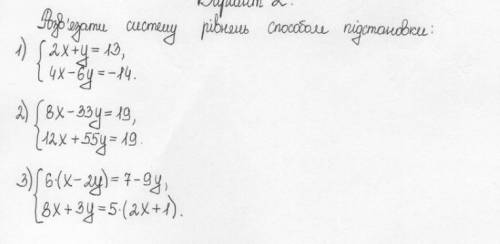 Варіант 2.
Розв'язати систему рівнень способом підстановки:
1) { 2x+y=13,
4x-6y=-14.
2) { 8x-33y=19,
12x+55y=19.
3) { 6·(x-2y)=7-9y,
8x+3y=5·(2x+1).